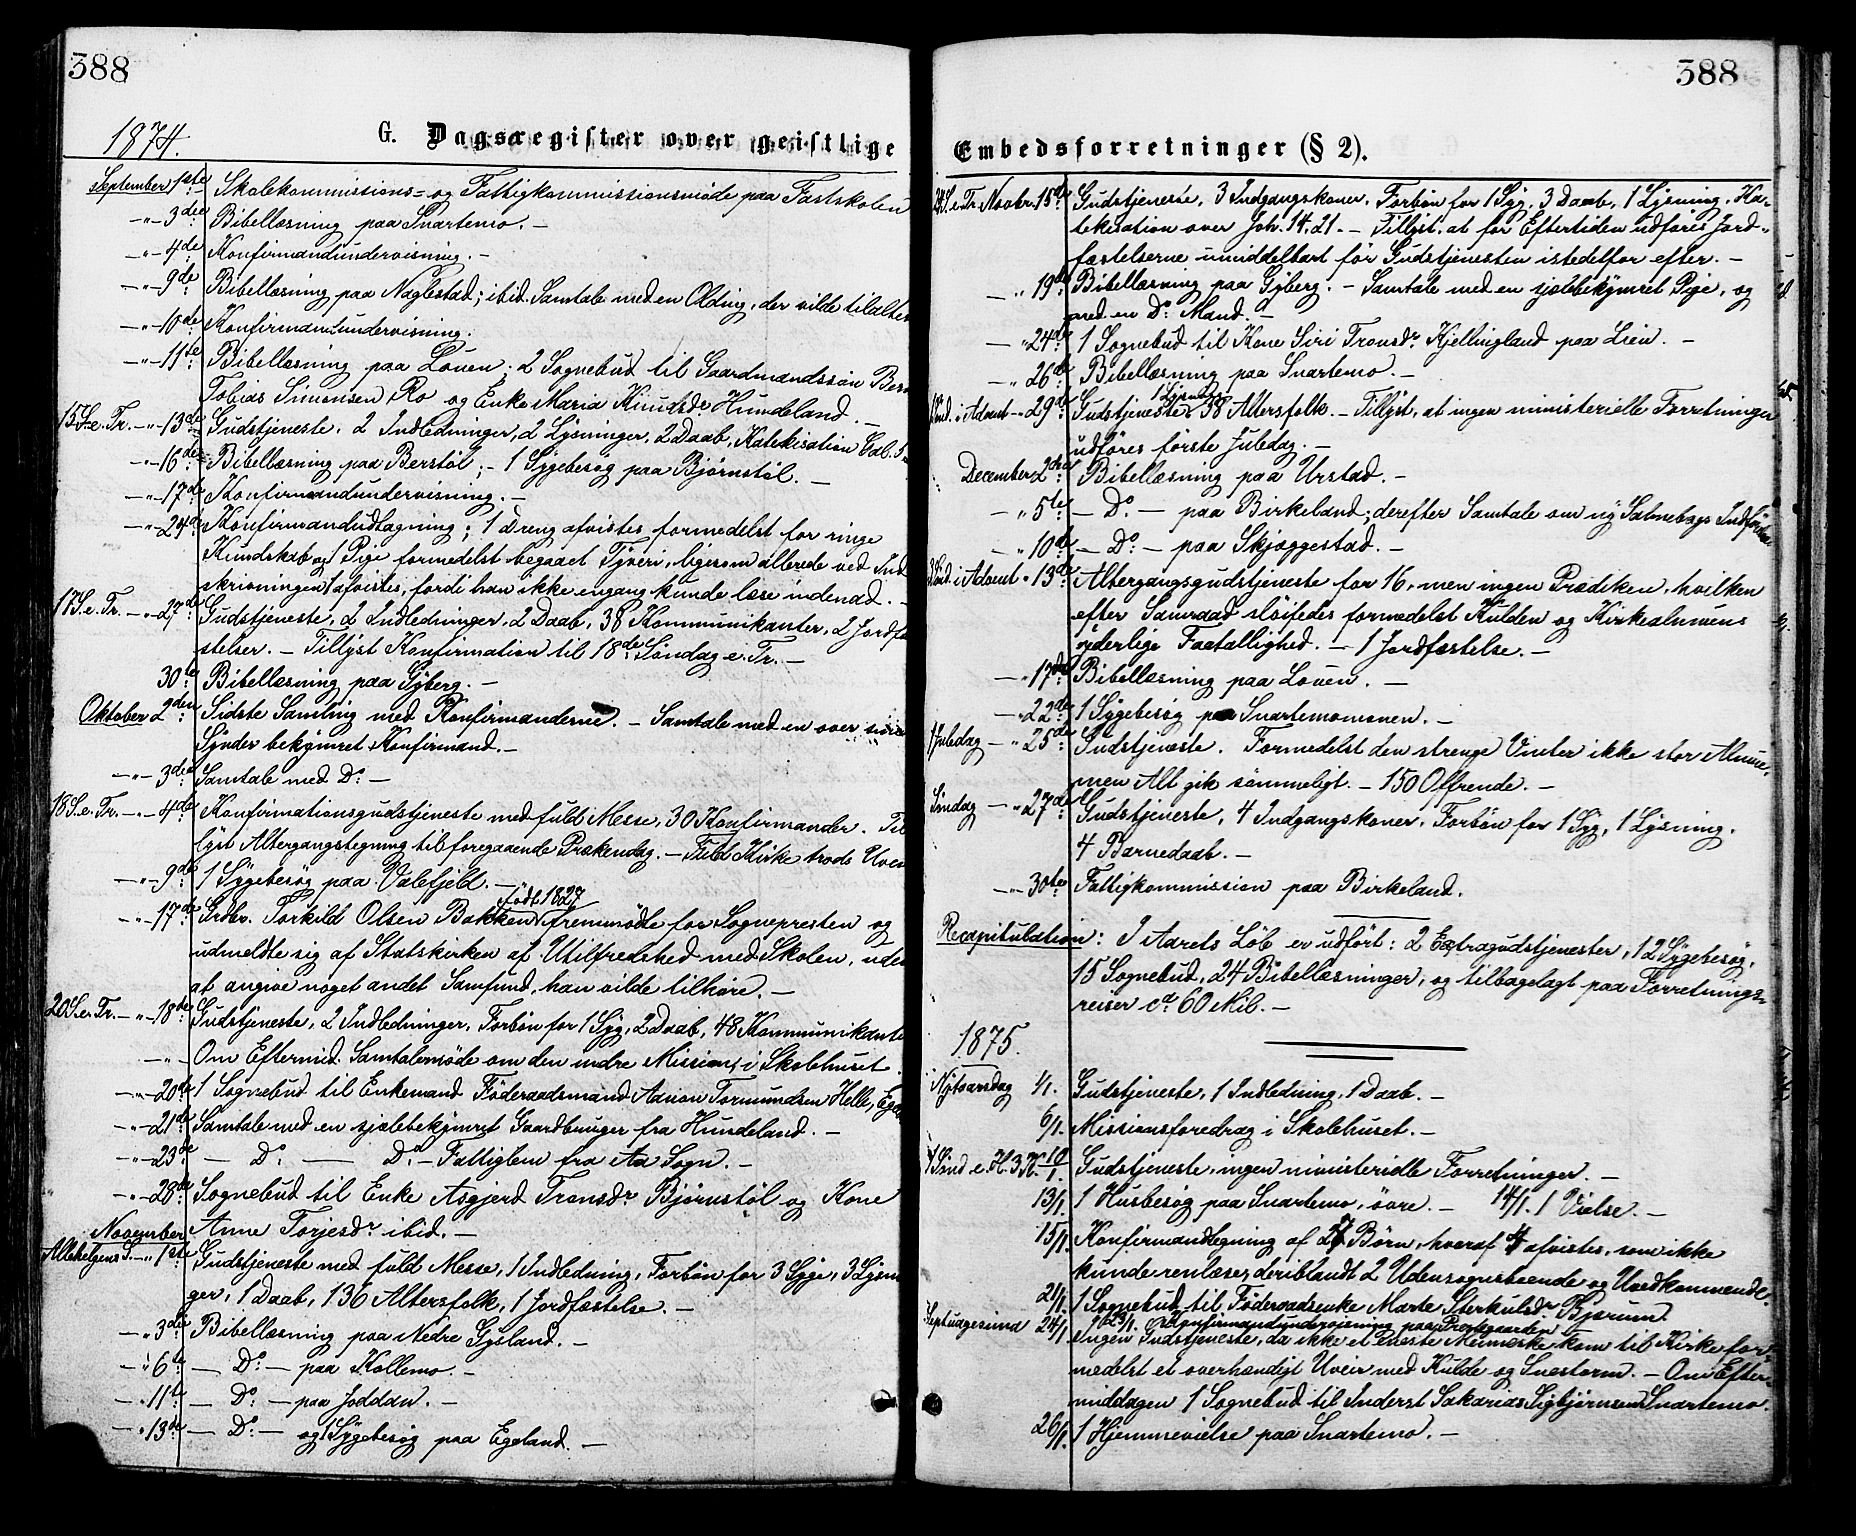 388
1874.
G. Dagsregister over geistlige
September 1ste Skolekommissions- og Fattigkommissionsmøde paa Fastskolen
-"- 3die Bibellæsning paa Snartemo. -
-"- 4de Konfirmandundervisning. -
-"- 9de Bibellæsning paa Naglestad; ibid. Samtale med en Olding, der vilde tilalters
-"- 10de Konfirmandundervisning.
-"- 11te Bibellæsning paa Louen; 2 Sognebud til Gaardmandssøn
Tobias Simonsen Ro og Enke Maria Knudsdr Hundeland. -
15 S. e. Tr. -"- 13de Gudstjeneste, 2 Indledninger, 2 Lysninger, 2 Daab, Katekisation Gal. 5
-"- 16de Bibellæsning paa Berstøl; - 1 Sygebesøg paa Bjørnstøl. -
-"- 17de Konfirmandundervisning. -
-"- 24de Konfirmandudtagning; 1 Dreng afvistes formedelst for ringe
Kundskab og 1 Pige formedelst begaaet Tyveri, ligesom allerede ved Ind
skrivningen 1 afvistes, fordi han ikke engang kunde læse indenad. -
17 S. e. Tr. -"- 27de Gudstjeneste, 2 Indledninger, 2 Daab, 38 Kommunikanter, 2 Jordfæ
stelser. - Tillyst Konfirmation til 18de Søndag e. Tr. -
30te Bibellæsning paa Gyberg. -
Oktober 2den Sidste Samling med Konfirmanderne. - Samtale med en over sine
Synder bekymret Konfirmand. -
-"- 3die Samtale med Do. -
18 S. e. Tr. -"- 4de Konfirmationsgudstjeneste med fuld Messe, 30 Konfirmander. Til
lyst Altergangstegning til foregaaende Prækendag. - Fuld Kirke trods Uveir
-"- 9de 1 Sygebesøg paa Valefjeld. -
født 1827
-"- 17de Grdbr. Torkild Olsen Bakken fremmødte for Sognepresten og
udmeldte sig af Statskirken af Utilfredshed med Skolen, uden
at angive noget andet Samfund, han vilde tilhøre. -
20 S. e. Tr. -"- 18de Gudstjeneste, 2 Indledninger, Forbøn for 1 Syg, 2 Daab, 48 Kommunikanter
-"- Om Eftermid. Samtalemøde om den indre Mission i Skolehuset.
-"- 20de 1 Sognebud til Enkemand Føderaadsmand Aanon Tormundsen Helle,
-"- 21de Samtale med en sjælebekymret Gaardbruger fra Hundeland. -
-"- 23de - Do. - Do. - Fattiglem fra Aa Sogn. -
-"- 28de Sognebud til Enke Asgjerd Tronsdr Bjørnstøl og Kone
Anne Torjesdr ibid. -
November
Allehelgens S. -"- 1ste Gudstjeneste med fuld Messe, 1 Indledning, Forbøn for 3 Syge, 3 Lysnin
ger, 1 Daab, 136 Altersfolk, 1 Jordfæstelse. -
-"- 3die Bibellæsning paa Nedre Gysland. -
-"- 6te - Do. - paa Kollemo. -
-"- 11te - Do. - paa Joddan. -
-"- 13de - Do. - og 1 Sygebesøg paa Egeland. -
388
Embedsforretninger (§ 2).
24 S. e. Tr. Novbr. 15de Gudstjeneste, 3 Indgangskoner, Forbøn for 1 Syg, 3 Daab, 1 Lysning, Ka-
tekisation over Joh. 14, 21. - Tillyst, at for Eftertiden udføres Jord-
fæstelserne umiddelbart før Gudstjenesten istedetfor efter. -
-"- 19de Bibellæsning paa Gyberg. - Samtale med en sjælebekymret Pige, og
med en Do. Mand. -
-"- 24de 1 Sognebud til Kone Siri Tronsdr Kjellingland paa Lien. -
-"- 26de Bibellæsning paa Snartemo. -
1 Lysning
1 Sønd. i Advent -"- 29de Gudstjeneste, 38 Altersfolk. - Tillyst, at ingen ministerielle Forretninger
udføres første Juledag. -
December 2den Bibellæsning paa Urstad. -
-"- 5te - Do. - paa Birkeland; derefter Samtale om ny Salmebogs Indførelse
-"- 10de - Do. - paa Skjæggestad. -
3 Sønd. i Advent -"- 13de Altergangsgudstjeneste for 16, men ingen Prædiken, hvilken
efter Samraad sløifedes formedelst Kulden og Kirkealmuens
yderlige Faatallighed. - 1 Jordfæstelse. -
-"- 17de Bibellæsning paa Louen. -
-"- 22de 1 Sygebesøg paa Snartemomonen. -
1 Juledag -"- 25de Gudstjeneste. Formedelst den strenge Vinter ikke stor Almue,
men Alt gik sømmeligt. - 150 Offrende. -
Søndag -"- 27de Gudstjeneste, 4 Indgangskoner, Forbøn for 1 Syg, 1 Lysning,
4 Barnedaab. -
-"- 30te Fattigkommission paa Birkeland.
Recapitulation: I Aarets Løb er udført: 2 Extragudstjenester, 12 Sygebesøg,
15 Sognebud, 24 Bibellæsninger, og tilbagelagt paa Forretnings-
reiser ca 60 Mil. -
1875.
Nytaarsdag 1/1. Gudstjeneste, 1 Indledning, 1 Daab. -
6/1. Missionsforedrag i Skolehuset. -
1 Sønd. e. H. 3 K. 10/1 Gudstjeneste, ingen ministerielle Forretninger. -
13/1. 1 Husbesøg paa Snartemo, øvre. - 14/1. 1 Vielse. -
15/1. Konfirmandtegning af 27 Børn, hvoraf 4 afvistes, som ikke
kunde renlæse, deriblandt 2 Udensognsboende og Uvedkommende.
21/1. 1 Sognebud til Føderaadsenke Marte Sterkulsdr Bjørum.
Konfirmandundervisning paa Præstgaarden
Septuagesima 24/1. Ingen Gudstjeneste, da ikke et eneste Menneske kom til Kirke for-
medelst et overhændigt Uveir med Kulde og Snestorm. - Om Efter-
middagen 1 Sognebud til Inderst Sakarias Sigbjørnsen Snartemo.
26/1. 1 Hjemmevielse paa Snartemo. -